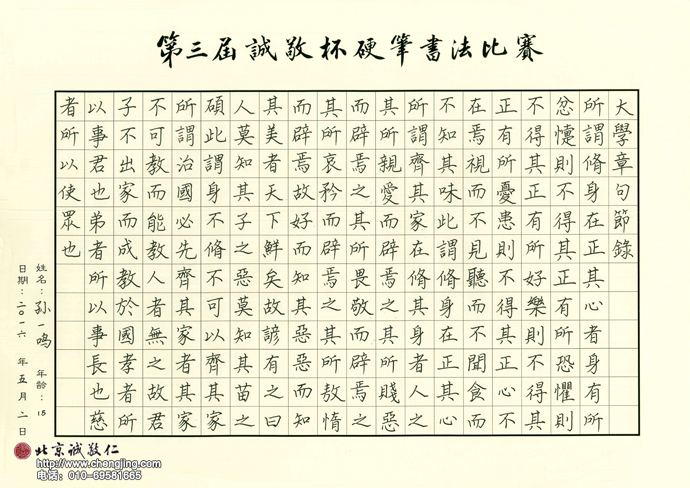 第三届誠敬杯硬筆書法比賽
大學章句節錄
所謂脩身在正其心者身有所
忿懥則不得其正有所恐懼則
不得其正有所好樂則不得其
正有所憂患則不得其正心不
在焉視而不見聽而不聞食而
不知其味此謂脩身在正其心
所謂齊其家在脩其身者人之
其所親愛而辟焉之其所賤惡
而辟焉之其所畏敬而辟焉之
其所哀矜而辟焉之其所敖惰
而辟焉故好而知其惡惡而知
其美者天下鮮矣故諺有之曰
人莫知其子之惡莫知其苗之
碩此謂身不脩不可以齊其家
所謂治國必先齊其家者其家
不可教而能教人者無之故君
子不出家而成教於國孝者所
以事君也弟者所以事長也慈
者所以使眾也
姓名:孙一鸣 年龄:15
日期:二〇一六年五月二日
北京誠敬仁
http://www.chengjing.com
电话：010-69581665